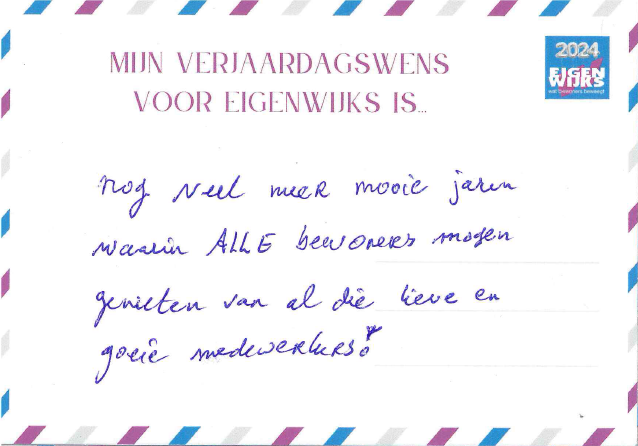 MIJN VERJAARDAGSWENS
VOOR EIGENWIJKS IS...
2024
EIGEN
WIJKS
nog veel meer mooie jaren
waarin ALLE bewoners mogen
genieten van al die lieve en
goeie medewerkers!